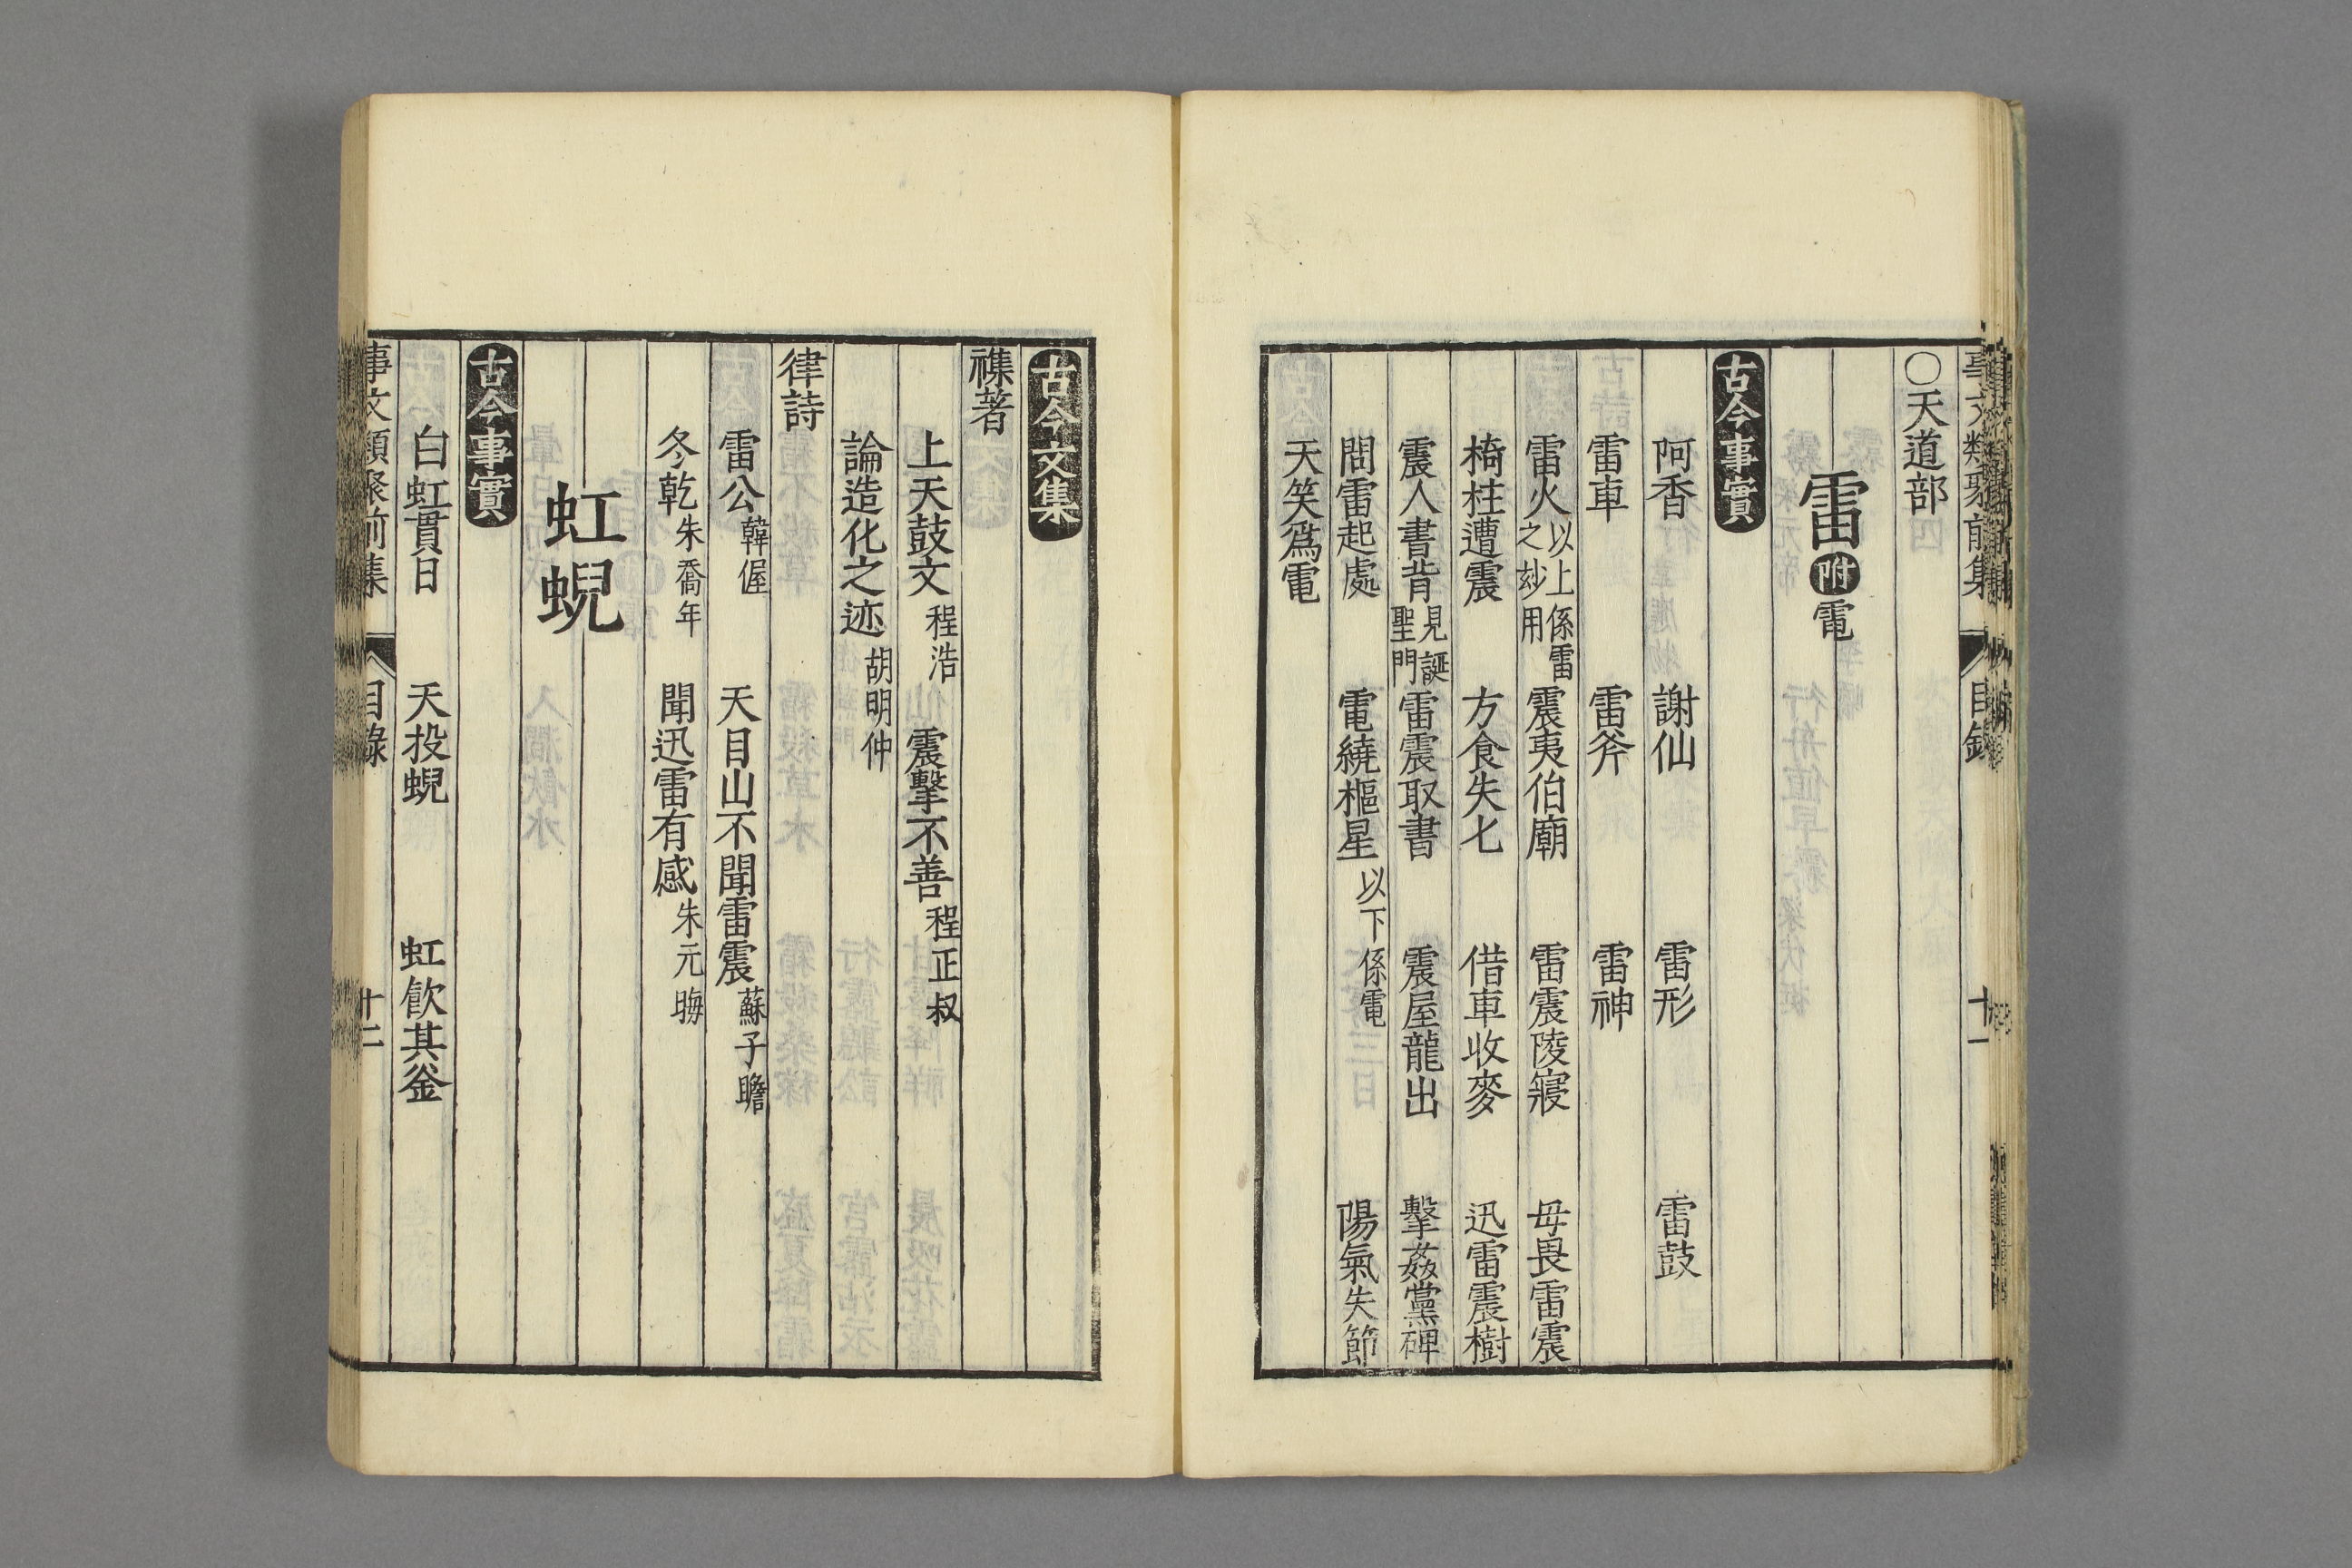 事文類聚前集 目録 十一
〇天道部
雷附電
古今事實
阿香 謝仙 雷形 雷鼓
雷車 雷斧 雷神
雷火以上係雷之玅用 震夷伯廟 雷震陵寢 毋畏雷震
椅柱遭震 方食失匕 借車收麥 迅雷震樹
震人書背見誕聖門 雷震取書 震屋龍出 擊姦黨碑
問雷起處 電繞樞星以下係電 陽氣失節
天笑爲電
古今文集
襍著
上天鼓文程浩 震擊不善程正叔
論造化之迹胡明仲
律詩
雷公韓偓 天目山不聞雷震蘇子瞻
冬乾朱喬年 聞迅雷有感朱元晦
虹蜺
古今事實
白虹貫日 天投蜺 虹飲其釜
事文類聚前集 目錄 十二